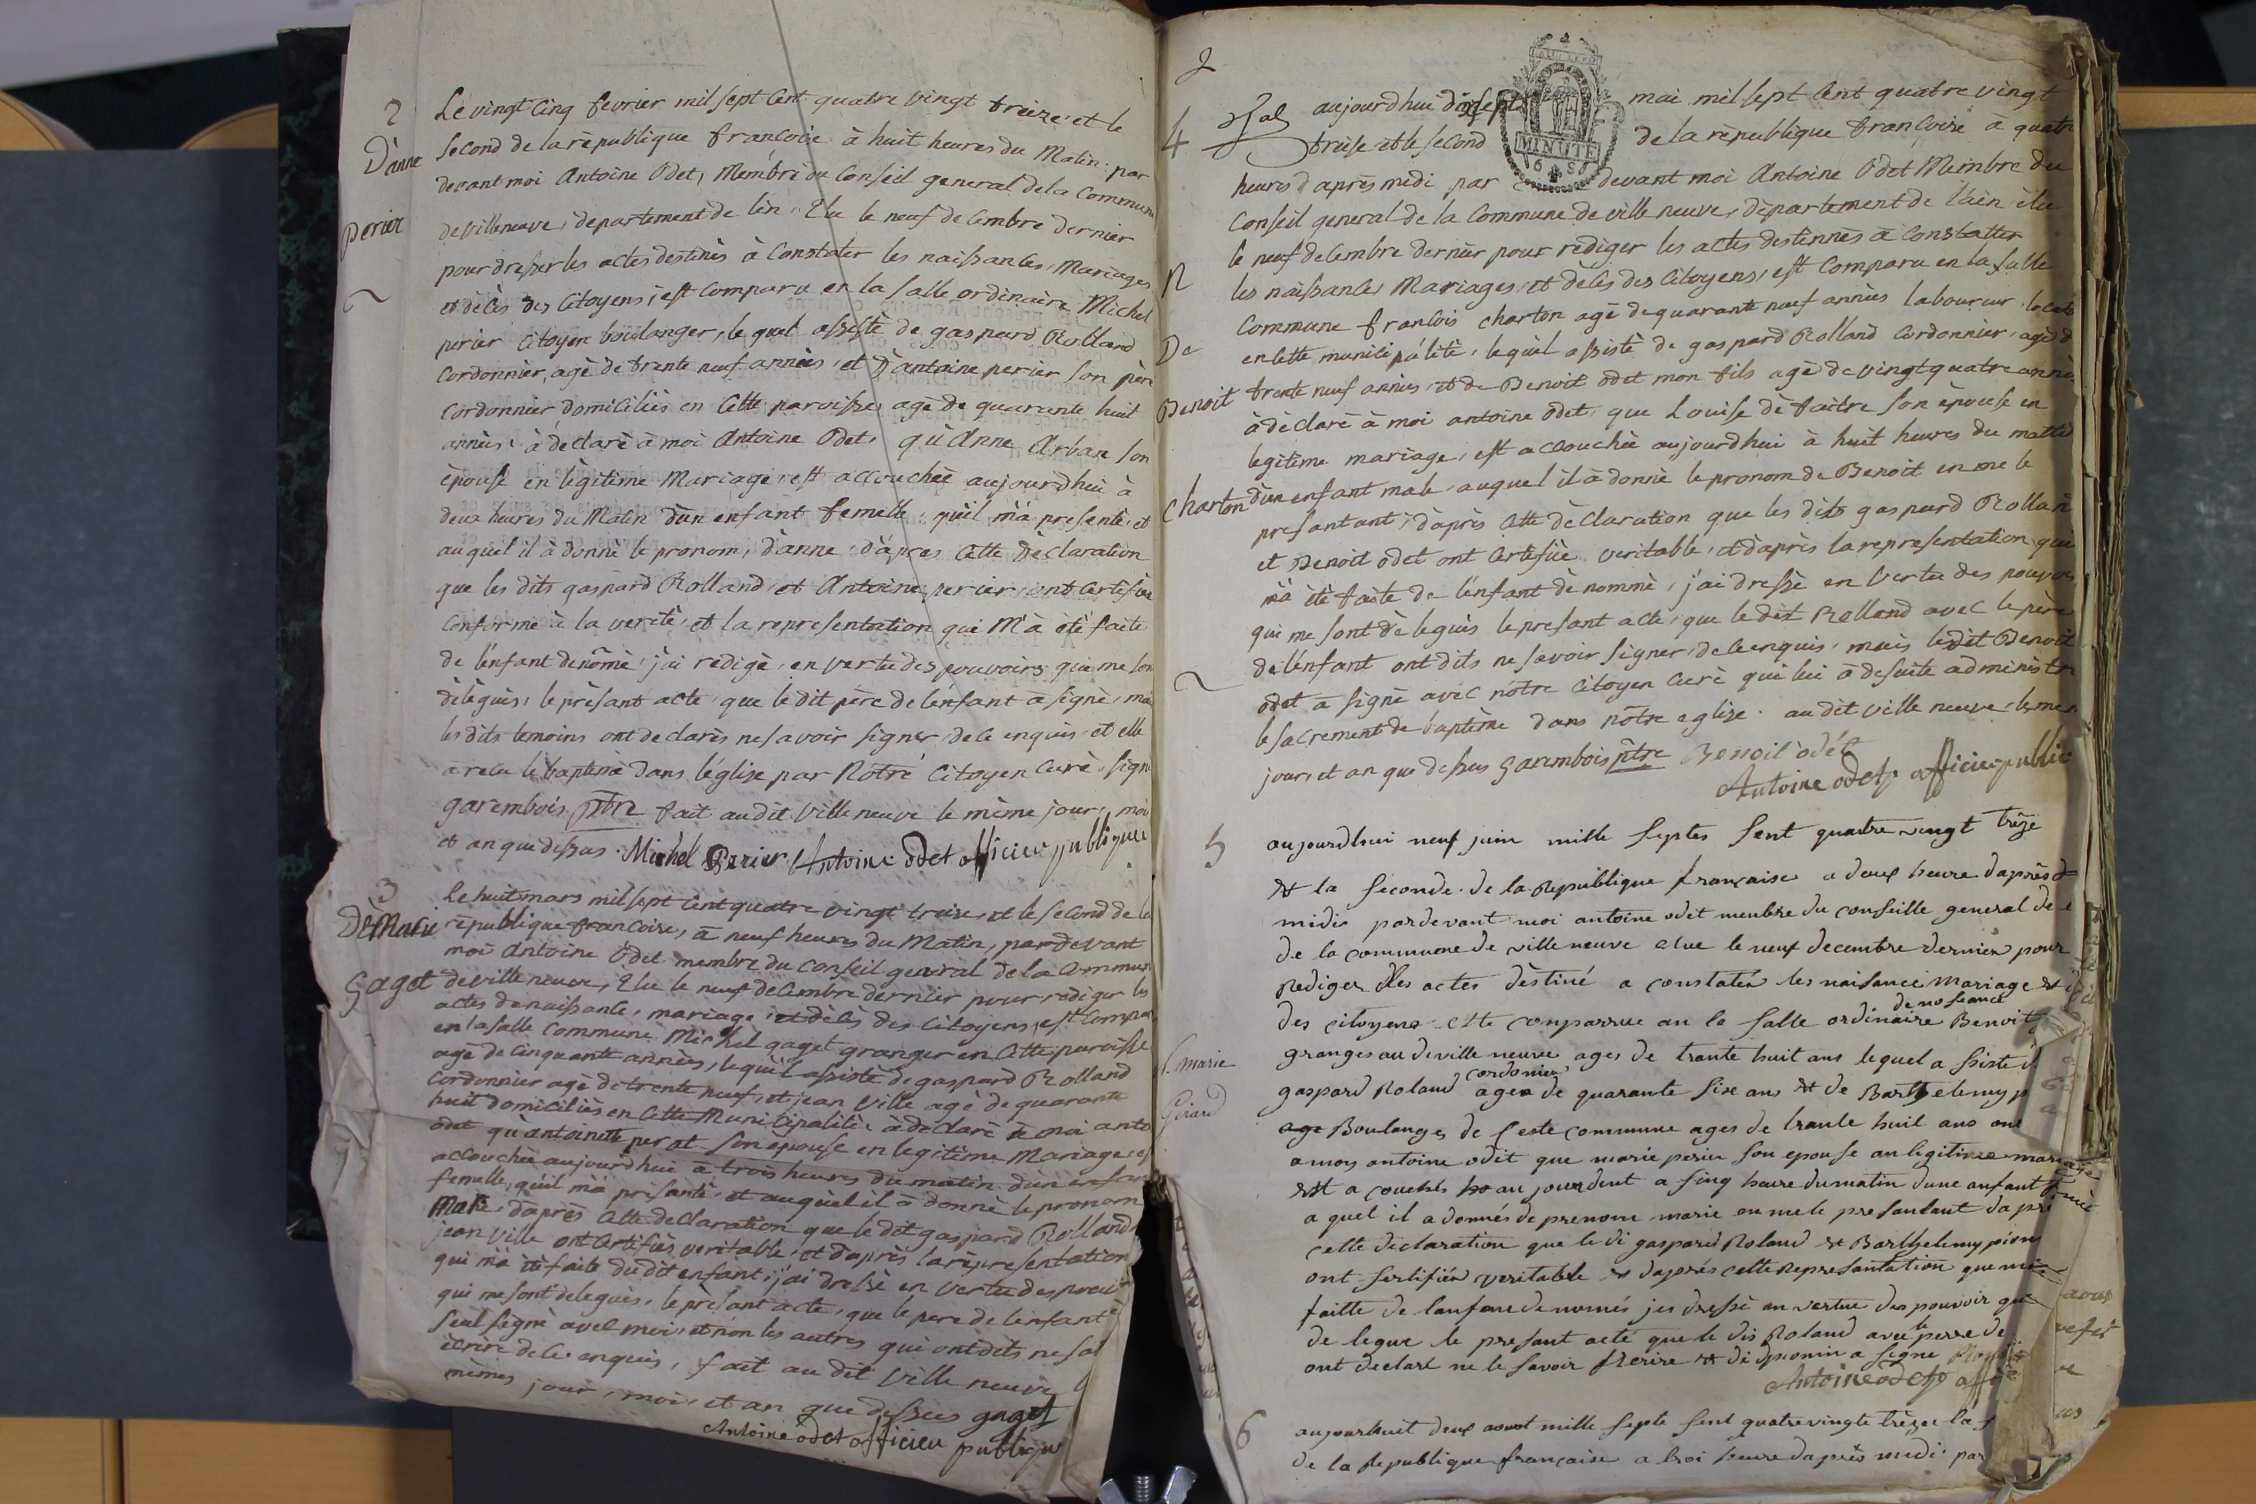 2
D'anne
perier
Le vingt cinq fevrier mil sept Cent quatre vingt treize et le
second de la rèpublique francoise à huit heures du Matin par
devant moi Antoine Odet, Membre du Conseil general de la Commune
de villeneuve, département de l'ein, Elu le neuf decembre dernier
pour dresser les actes destinès à Constater les naissances, Mariages
et dècès des Citoyens, est Comparu en la salle ordinaire Michel
perier Citoyen boulanger, le quel assistè de gaspard Rolland
Cordonnier, agè de trente neuf annèes, et d'antoine perier son père
Cordonnier domiciliès en Cette paroisse agè de quarante huit
annèes, à dèclarè à moi Antoine Odet, qu'Anne Arban son
èpouse en lègitime Mariage, est accouchèe aujourd'hui à
deux heures du Matin d'un enfant femelle, qu'il m'à presentè, et
auquel il à donnè le pronom, d'anne, d'après Cette dèclaration
que les dits gaspard Rolland, et Antoine perier, ont Certifièe
Conforme à la veritè, et la representation qui M'à ètè faite
de l'enfant denômè, j'ai redigè, en vertu des pouvoirs qui me son
dèlèguès, le prèsant acte, que le dit père de l'enfant a signè, mai
les dits temoins ont declarès ne savoir signer de ce enquis, et elle
a recu le baptème dans l'église par Notre Citoyen Curè, signè
garembois ptre fait au dit Ville neuve le mème jour, moi
et an que dessus. Michel Perier Antoine odet officier publique
3
De Marie
Gaget
Le huit mars mil sept Cent quatre vingt treize, et le second de la
rèpublique francoise, à neuf heures du Matin, par devant
moi Antoine Odet membre du Conseil general de la Commun
de ville neuve, Elu le neuf decembre dernier pour rediger les
actes de naissance, mariage, et dècès des Citoyens, est Compar
en la salle Commune Michel gaget granger en Cette paroisse
agè de Cinquante annèes, lequel assistè de gaspard Rolland
Cordonnier agè de trente neuf, et jean Ville agè de quarante
huit domiciliès en Cette Municipalitè, à dèclarè à moi anto
odet qu'antoinette perat son èpouse en legitime Mariage, est
accouchèe aujourd'hui à trois heures du matin d'un enfant
femelle, qu'il m'à prèsantè, et auquel il à donnè le pronom
Marie, d'après Cette dèclaration que le dit gaspard Rolland
jean Ville ont Certifiès veritable, et d'après la rèpresentation
qui m'à ètè faite du dit enfant, j'ai dressè en vertu des pouvoi
qui me sont delegués, le prèsant acte, que le pere de l'enfant à
seul signè avec moi, et non les autres qui ont dits ne sa
ècrire de Ce enquis, fait au dit Ville neuve
mèmes jour, moi, et an que dessus gaget
Antoine odet officieu publique
2
MINUTE
4
De
Benoit
Charton
aujourd'hui dixsept mai mil sept Cent quatre vingt
treise et le second de la rèpublique francoise à quatr
heures d'après midi par devant moi Antoine Odet Membre du
Conseil general de la Commune de ville neuve, dèpartement de l'ain èlu
le neuf decembre dernièr pour rèdiger les actes destinnès à Constatter
les naissances, Mariages, et dècès des Citoyens, est Comparu en la salle
Commune francois charton agè de quarante neuf annèes laboureur
en Cette municipalitè, lequel assistè de gaspard Rolland Cordonnier, agè d
trente neuf annèes, et de Benoit odet mon fils agè de vingt quatre annèe
à dèclarè à moi antoine odet, que Louise dè faitre son èpouse en
legitime mariage, est accouchèe aujourd'hui à huit heures du matin
d'un enfant male, auquel il à donnè le pronom de Benoit en me le
presantant, d'après Cette dèclaration que les dits gaspard Rolland
et Benoit odet ont Certifiée veritable, et d'après la representation qui
m'à ètè faite de l'enfant dènommè, j'ai dressè en Vertu des pouvoirs
qui me sont dèleguès le presant acte, que le dit Rolland avec le père
de l'enfant ont dits ne savoir signer, de Ce enquis, mais le dit Benoit
odet a signè avec nôtre Citoyen Curè qui lui à de suite administr
le sacrement de baptème dans nôtre eglise. au dit Ville neuve, le mem
jour, et an que dessus garembois ptre Benoit odet
Antoine odet officieu public
5
marie
aujourdhui neuf juin mille septes sent quatre vingt trèze
et la seconde de la Republique française a deux heure daprès
midis pardevant moi antoine odet menbre du conseille general de
de la commune de ville neuve elue le neuf decembre dernier pour
Rediger les actes dèstiné a constatér les naisance mariage et
des citoyens ette comparrue an la salle ordinaire de no seance Benoit
granges au deville neuve ages de trante huit ans lequel a ssiste
gaspard Roland cordonier ages de quarante sixe ans et de Barthelemy p
age Boulanges de ceste commune ages de trante huit ans ont
a moy antoine odit que marie perier son epouse an legitime mariage
ett a couchés au jourdeut a sinq heure du matin dune anfant
a quel il a donnés de prenom marie en me le presantant daprè
cette declaration que le di gaspard Roland et Barthelemy pion
ont sertifiér veritable et daprés cette Representation que
faitte de lanfant denomés jes dressé an vertue des pouvoir que
de legue le presant acte que le dis Roland avec le perre de
ont declaré ne le savoir screrire et di pionin a signe
Antoine odet
6
aujourhuit deux aout mille septe sent quatre vingte trèze la
de la Republique française a troi heure daprès midi par